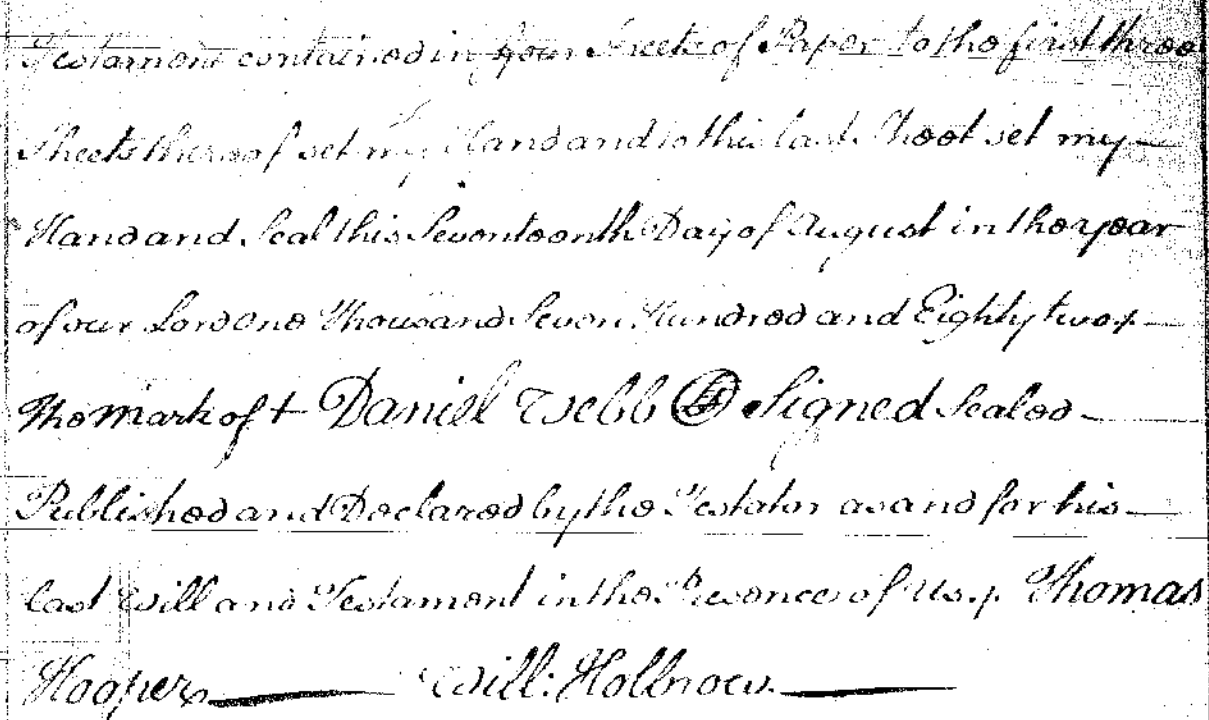 Testament contained in four Sheets of Paper to the first three
Sheets thereof set my Hand and to this last Sheet set my
Hand and Seal this Seventeenth Day of August in the year
of our Lord one Thousand Seven Hundred and Eighty two
The mark of + Daniel Webb LS Signed Sealed
Published and Declared by the Testator as and for his
last Will and Testament in the Presence of Us Thomas
Hooper Will: Hollnow